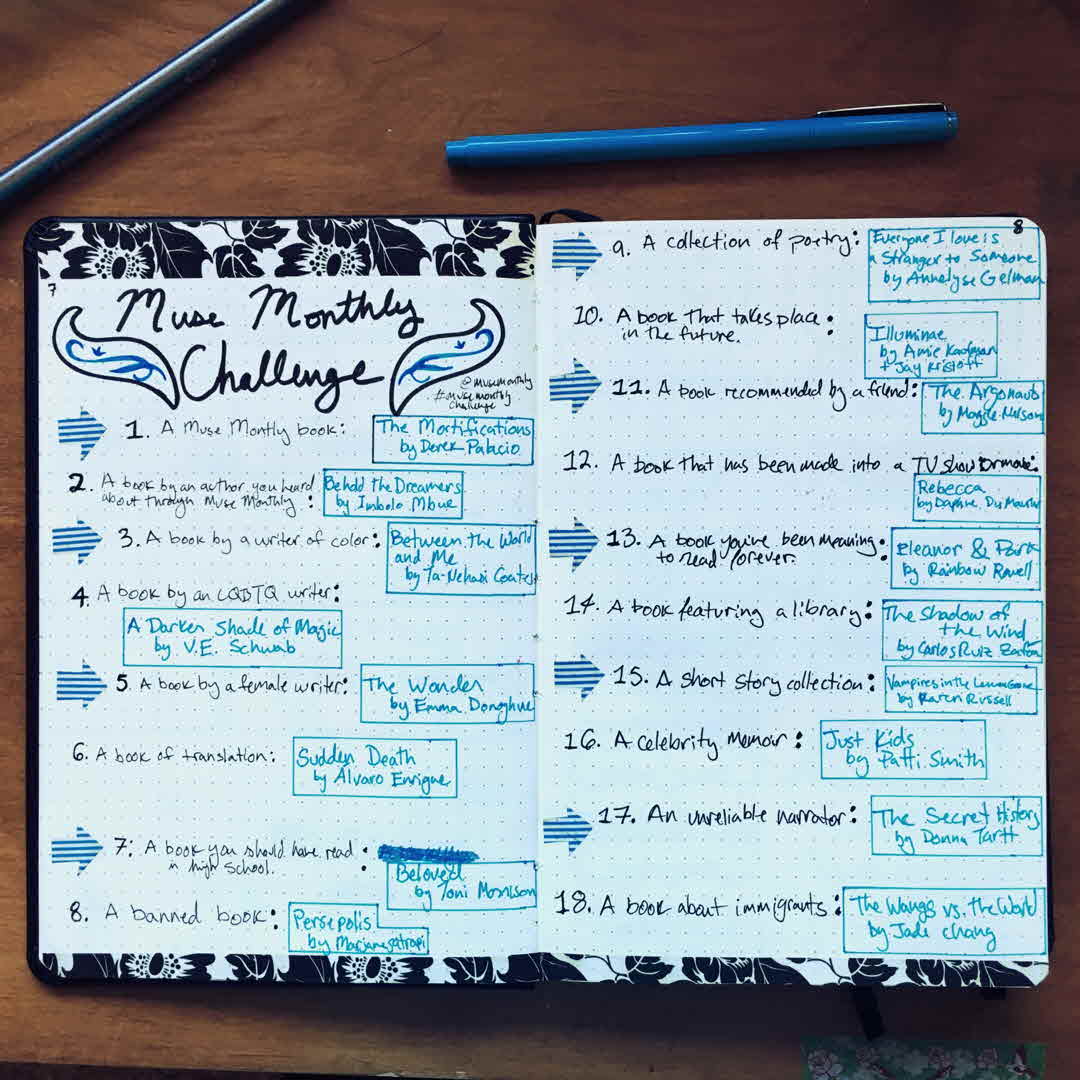 7
Muse Monthly
Challenge
@musemonthly
#musemonthly
challenge
1. A Muse Montly book:
The Mortifications
by Derek Palacio
2. A book by an author you heard
about through Muse Monthly:
Behold the Dreamers
by Imbolo Mbue
3. A book by a writer of color:
Between the World
and Me
by Ta-Nehasi Coates
4. A book by an LGBTQ writer:
A Darker Shade of Magic
by V.E. Schwab
5. A book by a female writer:
The Wonder
by Emma Donoghue
6. A book of translation:
Sudden Death
by Alvaro Enrigue
7: A book you should have read:
in high school.
Beloved
by Toni Morrison
8. A banned book:
Persepolis
by Marjane Satrapi
8
9. A collection of poetry:
Everyone I love is
a Stranger to Someone
by Annelyse Gelman
10. A book that takes place:
in the future.
Illuminae
by Amie Kaufman
+ Jay Kristoff
11. A book recommended by a friend:
The Argonauts
by Maggie Nelson
12. A book that has been made into a TV show or movie:
Rebecca
by Daphne Du Maurier
13. A book you've been meaning:
to read forever.
Eleanor & Park
by Rainbow Rowell
14. A book featuring a library:
The Shadow of
the Wind
by Carlos Ruiz Zafon
15. A short story collection:
Vampires in the Lemon Grove
by Karen Russell
16. A celebrity memoir:
Just Kids
by Patti Smith
17. An unreliable narrator:
The Secret History
by Donna Tartt
18. A book about immigrants:
The Wangs vs. the World
by Jade Chang